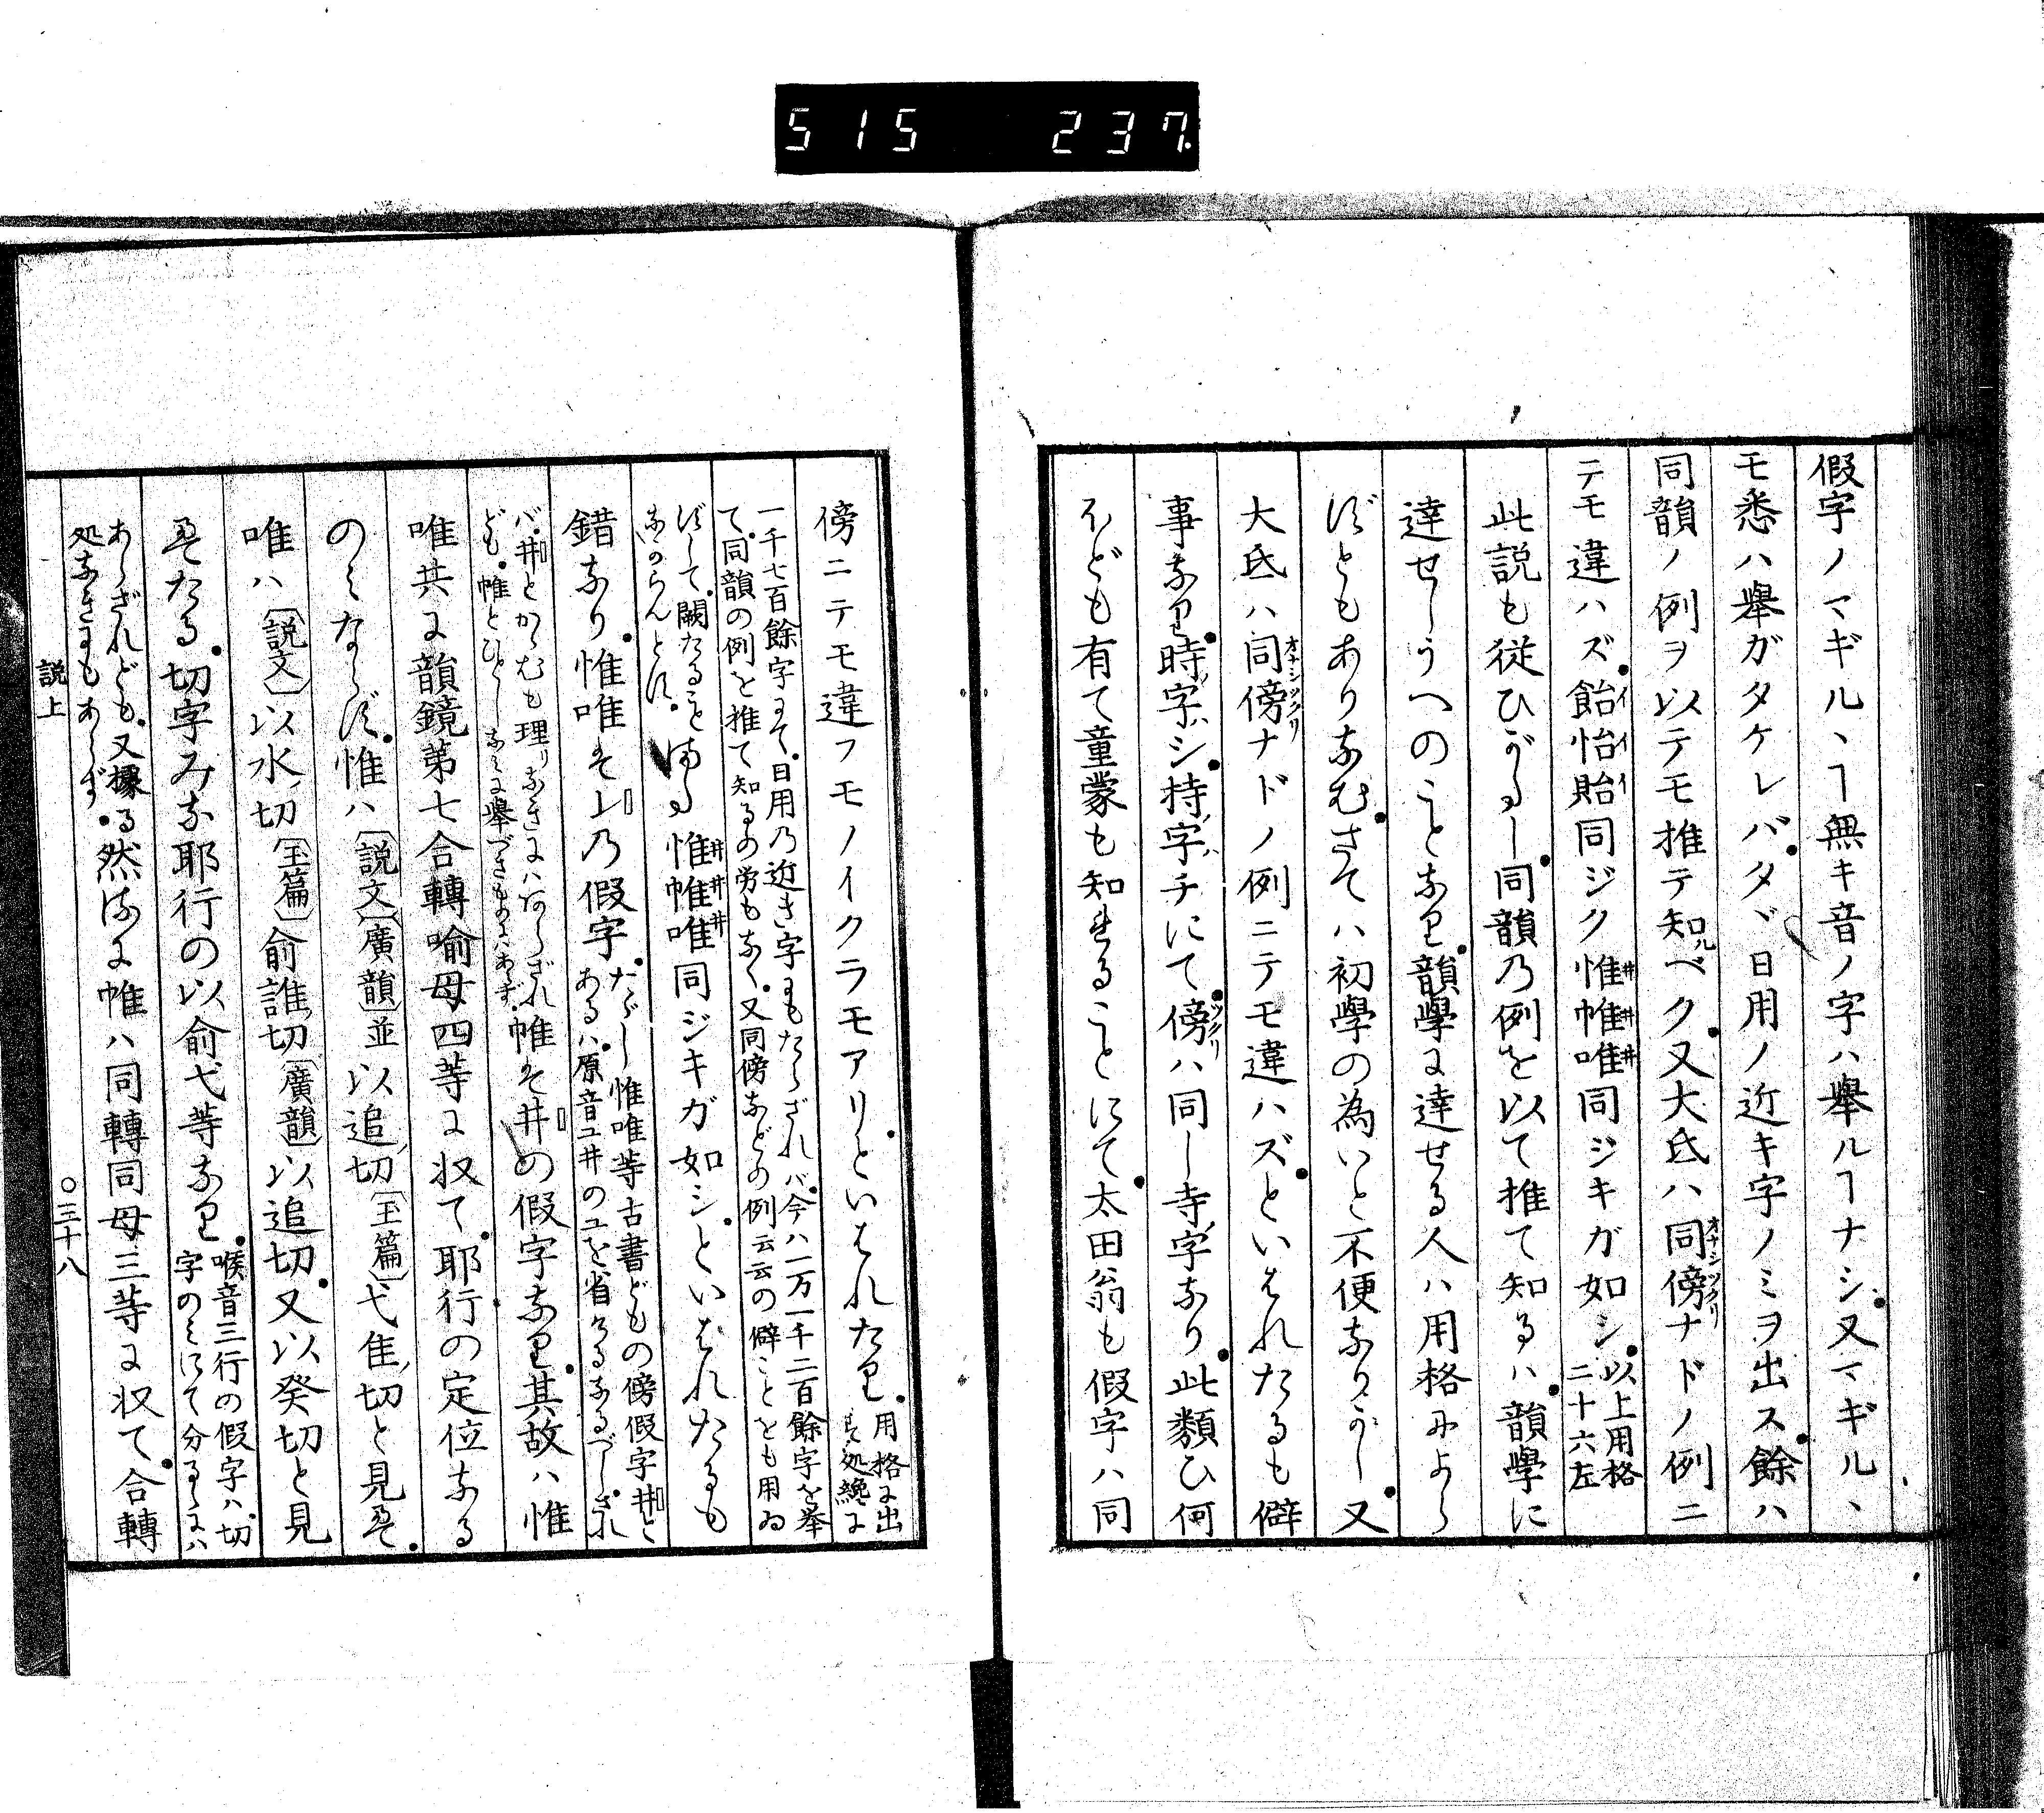 515 237
假字ノマギルヽヿ無キ音ノ字ハ舉ルヿナシ又マギルヽ
モ悉ハ舉ガタケレバタヾ日用ノ近キ字ノミヲ出ス餘ハ
同韻ノ例ヲ以テモ推テ知ルベク又大氐ハ同傍ナドノ例ニ
テモ違ハズ飴怡貽同ジク惟帷唯同ジキガ如シ以上用格
二十六左
此説も従ひがるし同韻乃例を以て推て知るハ韻學に
達せしうへのことなり韻學に達せる人ハ用格によら
ずともありなむさてハ初學の為いと不便なりかし又
大氐ハ同傍ナドノ例ニテモ違ハズといはれたるも僻
事なり時ノ字ハシ持ノ字ハチにて傍ハ同し寺ノ字なり此類ひ何
ほども有て童蒙も知れることにて太田翁も假字ハ同
傍ニテモ違フモノイクラモアリといはれたり用格に出
す処纔に
一千七百餘字にて日用乃近き字にもたらざれバ今ハ二万一千二百餘字を挙
て同韻の例を推て知るの労もなく又同傍などの例云云の僻ことをも用ゐ
ずして闕たることなからんとす
惟帷唯同ジキガ如シといはれたるも
錯なり惟唯そユ乃假字たゞし惟唯等古書どもの傍假字井と
あるハ原音ユ井のユを省けるなるべしされ
バ井とかゝむも理りなきにハあらざれ
ども帷とひとしなみに舉べきものにハあらず
帷そ井の假字なり其故ハ惟
唯共に韻鏡第七合轉喻母四等に収て耶行の定位なる
のミならず惟ハ〔説文〕〔廣韻〕並以追ノ切〔玉篇〕弋隹ノ切と見えそ
唯ハ〔説文〕以水ノ切〔玉篇〕俞誰ノ切〔廣韻〕以追切又以癸切と見
えたる切字みな耶行の以俞弋等なり喉音三行の假字ハ切
字のミにて分るゝにハ
あらざれども又據る
処なきにもあらず
然るに帷ハ同轉同母三等に収て合轉
説上
〇三十八